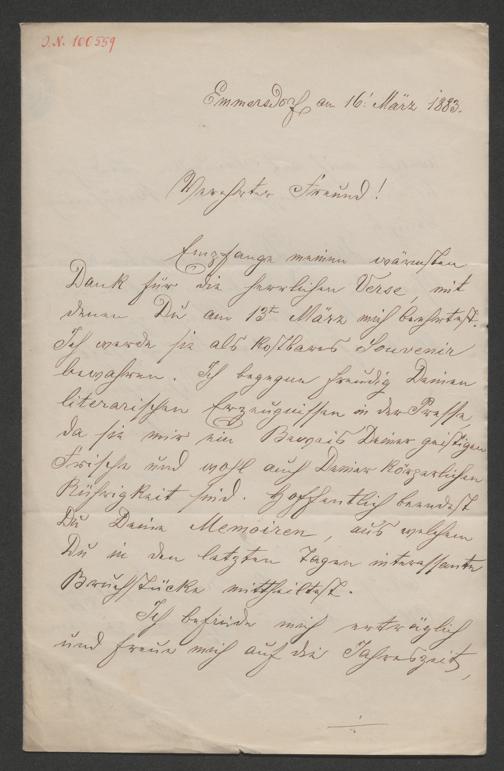 J.N. 100559
Emmersdorf am 16' März 1883.
Verehrter Freund!
Empfange meinen wärmsten
Dank für die herrlichen Verse, mit
denen Du am 13t März mich beehrtest.
Ich werde sie als kostbares Souvenir
bewahren. Ich begegne freudig Deinen
literarischen Erzeugnissen in der Presse,
da sie mir ein Beweis Deiner geistigen
Frische und wohl auch Deiner körperlichen
Rührigkeit sind. Hoffentlich beendest
Du Deine Memoiren, aus welchem
Du in den letzten Tagen interessante
Bruchstücke mittheiltest.
Ich befinde mich erträglich
und freue mich auf die Jahreszeit,